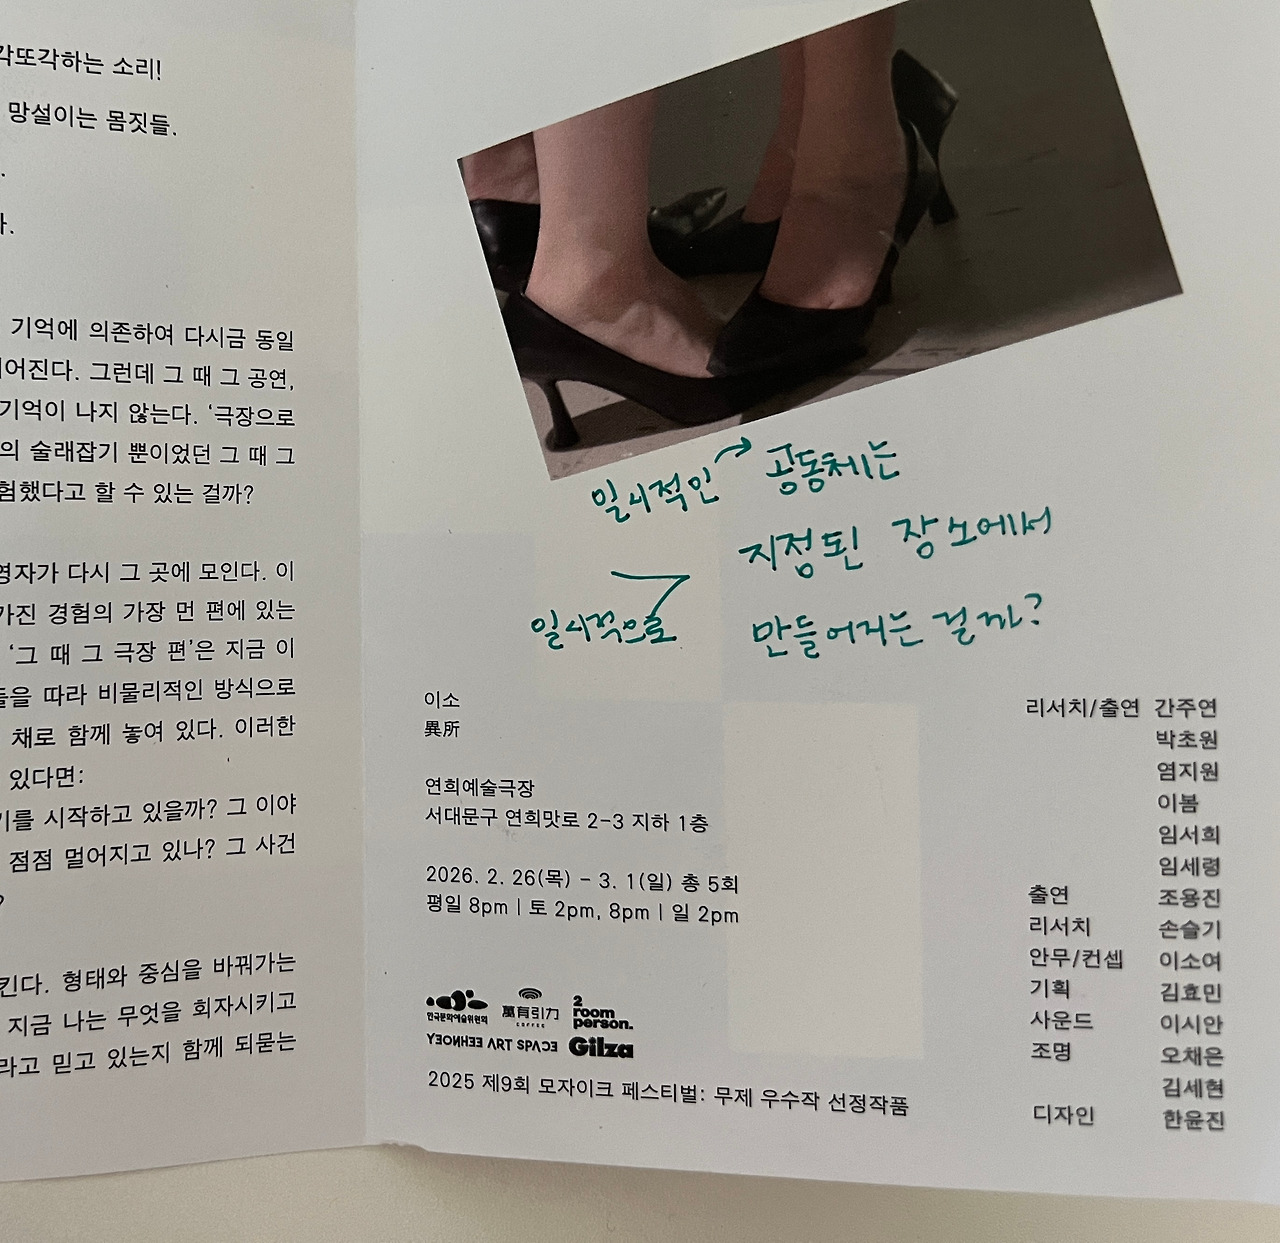 각또각하는 소리!
망설이는 몸짓들.
.
기억에 의존하여 다시금 동일
어진다. 그런데 그 때 그 공연,
기억이 나지 않는다. ‘극장으로
의 술래잡기 뿐이었던 그 때 그
험했다고 할 수 있는 걸까?
영자가 다시 그 곳에 모인다. 이
가진 경험의 가장 먼 편에 있는
‘그 때 그 극장 편’은 지금 이
들을 따라 비물리적인 방식으로
채로 함께 놓여 있다. 이러한
있다면:
기를 시작하고 있을까? 그 이야
점점 멀어지고 있나? 그 사건
?
킨다. 형태와 중심을 바꿔가는
지금 나는 무엇을 회자시키고
라고 믿고 있는지 함께 되묻는
일시적인 → 공동체는
지정된 장소에서
일시적으로
만들어지는 걸까?
이소
異所
연희예술극장
서대문구 연희맛로 2-3 지하 1층
2026. 2. 26(목) - 3. 1(일) 총 5회
평일 8pm | 토 2pm, 8pm | 일 2pm
한국문화예술위원회
萬有引力
COFFEE
2
room
person.
YEONHEE ART SPACE
Gilza
2025 제9회 모자이크 페스티벌: 무제 우수작 선정작품
리서치/출연 간주연
박초원
염지원
이봄
임서희
임세령
출연 조용진
리서치 손슬기
안무/컨셉 이소여
기획 김효민
사운드 이시안
조명 오채은
김세현
디자인 한윤진